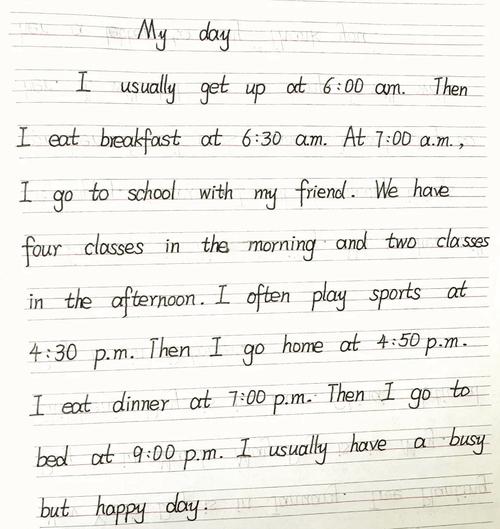 My day
I usually get up at 6:00 am. Then
I eat breakfast at 6:30 a.m. At 7:00 a.m.,
I go to school with my friend. We have
four classes in the morning and two classes
in the afternoon. I often play sports at
4:30 p.m. Then I go home at 4:50 p.m.
I eat dinner at 7:00 p.m. Then I go to
bed at 9:00 p.m. I usually have a busy
but happy day.